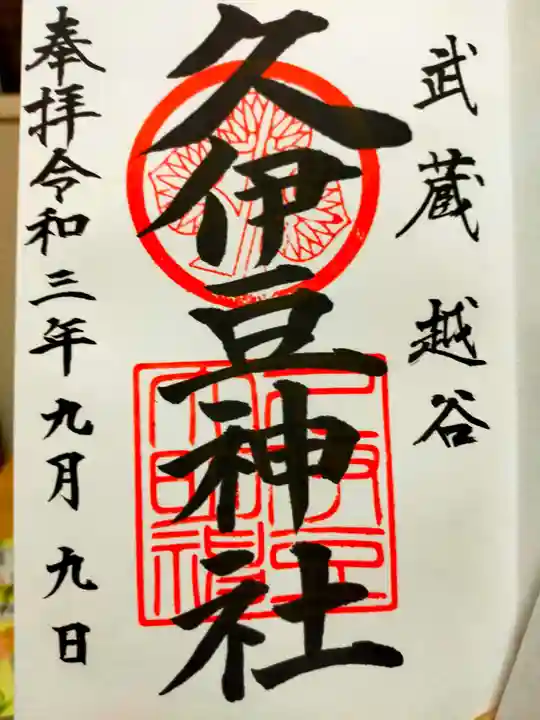 武蔵 越谷
久伊豆神社
奉拝令和三年九月九日